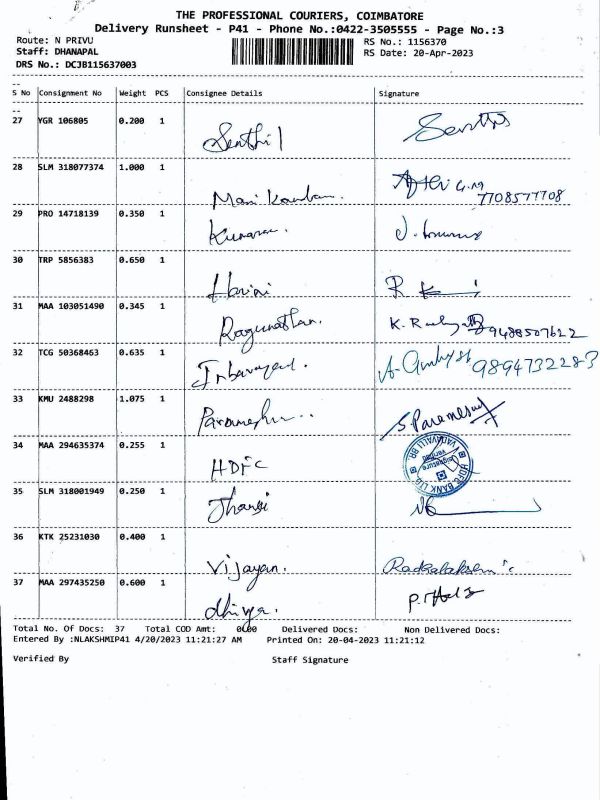 THE PROFESSIONAL COURIERS, COIMBATORE
Delivery Runsheet - P41 - Phone No.:0422-3505555 - Page No.:3
Route: N PRIVU RS No.: 1156370
Staff: DHANAPAL RS Date: 20-Apr-2023
DRS No.: DCJB115637003
S No Consignment No Weight PCS Consignee Details Signature
27 YGR 106805 0.200 1 Senthil
28 SLM 318077374 1.000 1 Mani 7708577708
29 PRO 14718139 0.350 1 Kumaran.
30 TRP 5856383 0.650 1 Harini R
31 MAA 103051490 0.345 1 Ragunathan. K. 9488507622
32 TCG 50368463 0.635 1 9894732283
33 KMU 2488298 1.075 1 S. Paramesh
34 MAA 294635374 0.255 1 HDFC HDFC BANK LTD. VADAVALLI BR. Signature Verified
35 SLM 318001949 0.250 1 Jhansi
36 KTK 25231030 0.400 1 Vijayan.
37 MAA 297435250 0.600 1 dhivya.
Total No. Of Docs: 37 Total COD Amt: 0.00 Delivered Docs: Non Delivered Docs:
Entered By :NLAKSHMIP41 4/20/2023 11:21:27 AM Printed On: 20-04-2023 11:21:12
Verified By Staff Signature